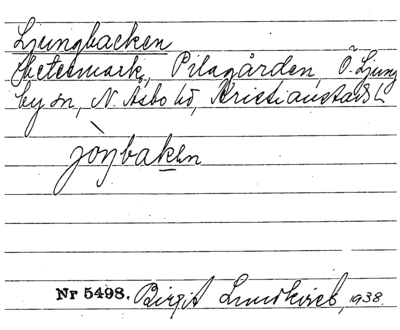 Ljungbacken
Betesmark, Pilagården, Ö. Ljung
by sn, N. Åsbo hd, Kristianstads l.
jòŋbakən
Nr 5498. Birgit Lundkvist, 1938.